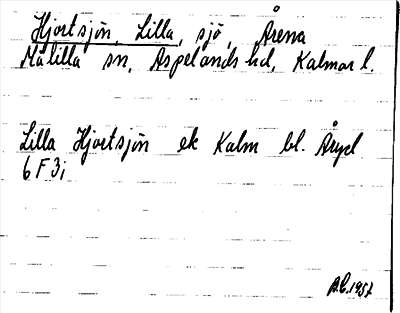 Hjortsjön, Lilla, sjö, Årena
Målilla sn, Aspelands hd, Kalmar l.
Lilla Hjortsjön ek Kalm bl.
6 F 3i
1957